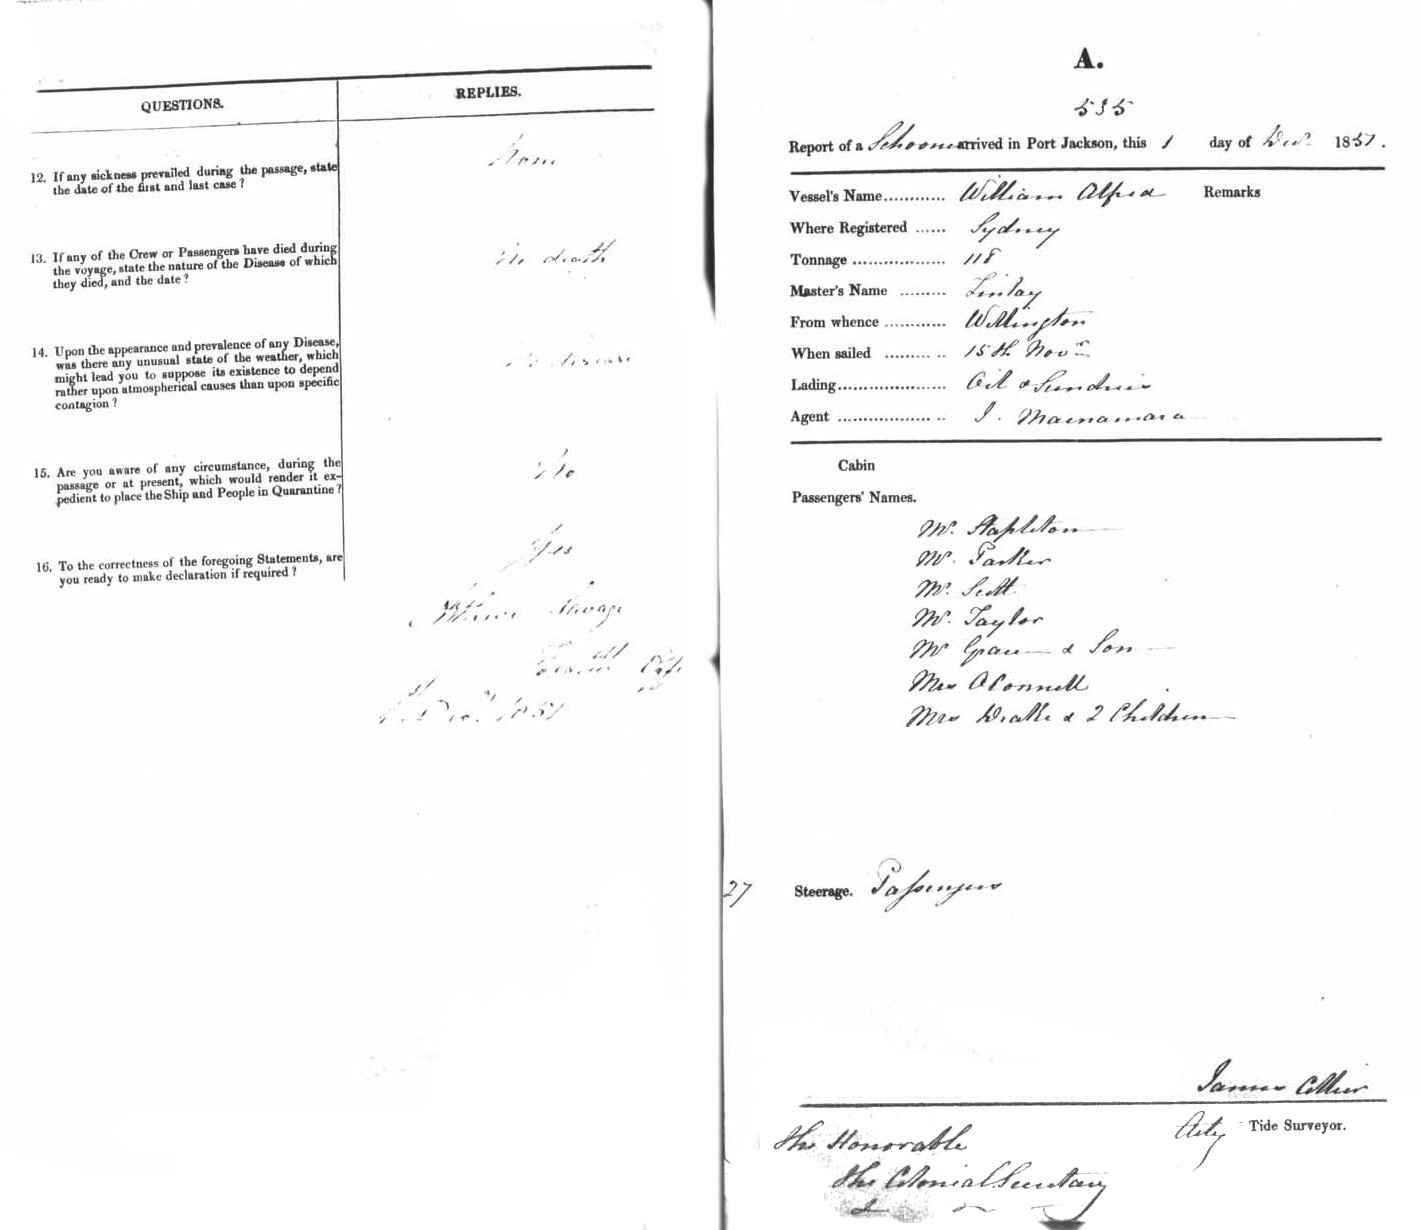 QUESTIONS.
REPLIES.
12. If any sickness prevailed during the passage, state
the date of the first and last case?
None
13. If any of the Crew or Passengers have died during
the voyage, state the nature of the Disease of which
they died, and the date?
No death
14. Upon the appearance and prevalence of any Disease,
was there any unusual state of the weather, which
might lead you to suppose its existence to depend
rather upon atmospherical causes than upon specific
contagion?
No disease
15. Are you aware of any circumstance, during the
passage or at present, which would render it ex-
pedient to place the Ship and People in Quarantine?
No
16. To the correctness of the foregoing Statements, are
you ready to make declaration if required?
Yes
Savage
Decr. 1851
A.
535
Report of a Schooner arrived in Port Jackson, this 1 day of Decr. 1851.
Vessel's Name............ William Alfred Remarks
Where Registered ...... Sydney
Tonnage .................. 118
Master's Name ......... Linlay
From whence ............ Wellington
When sailed ......... .. 15th Novr
Lading..................... Oil & Sundries
Agent .................. .. J. Macnamara
Cabin
Passengers' Names.
Mr. Stapleton
Mr. Parker
Mr. Scott
Mr. Taylor
Mr Grace & Son
Mrs OConnell
Mrs Drake & 2 Children
27 Steerage. Passengers
James Collier
Actg Tide Surveyor.
The Honorable
The Colonial Secretary